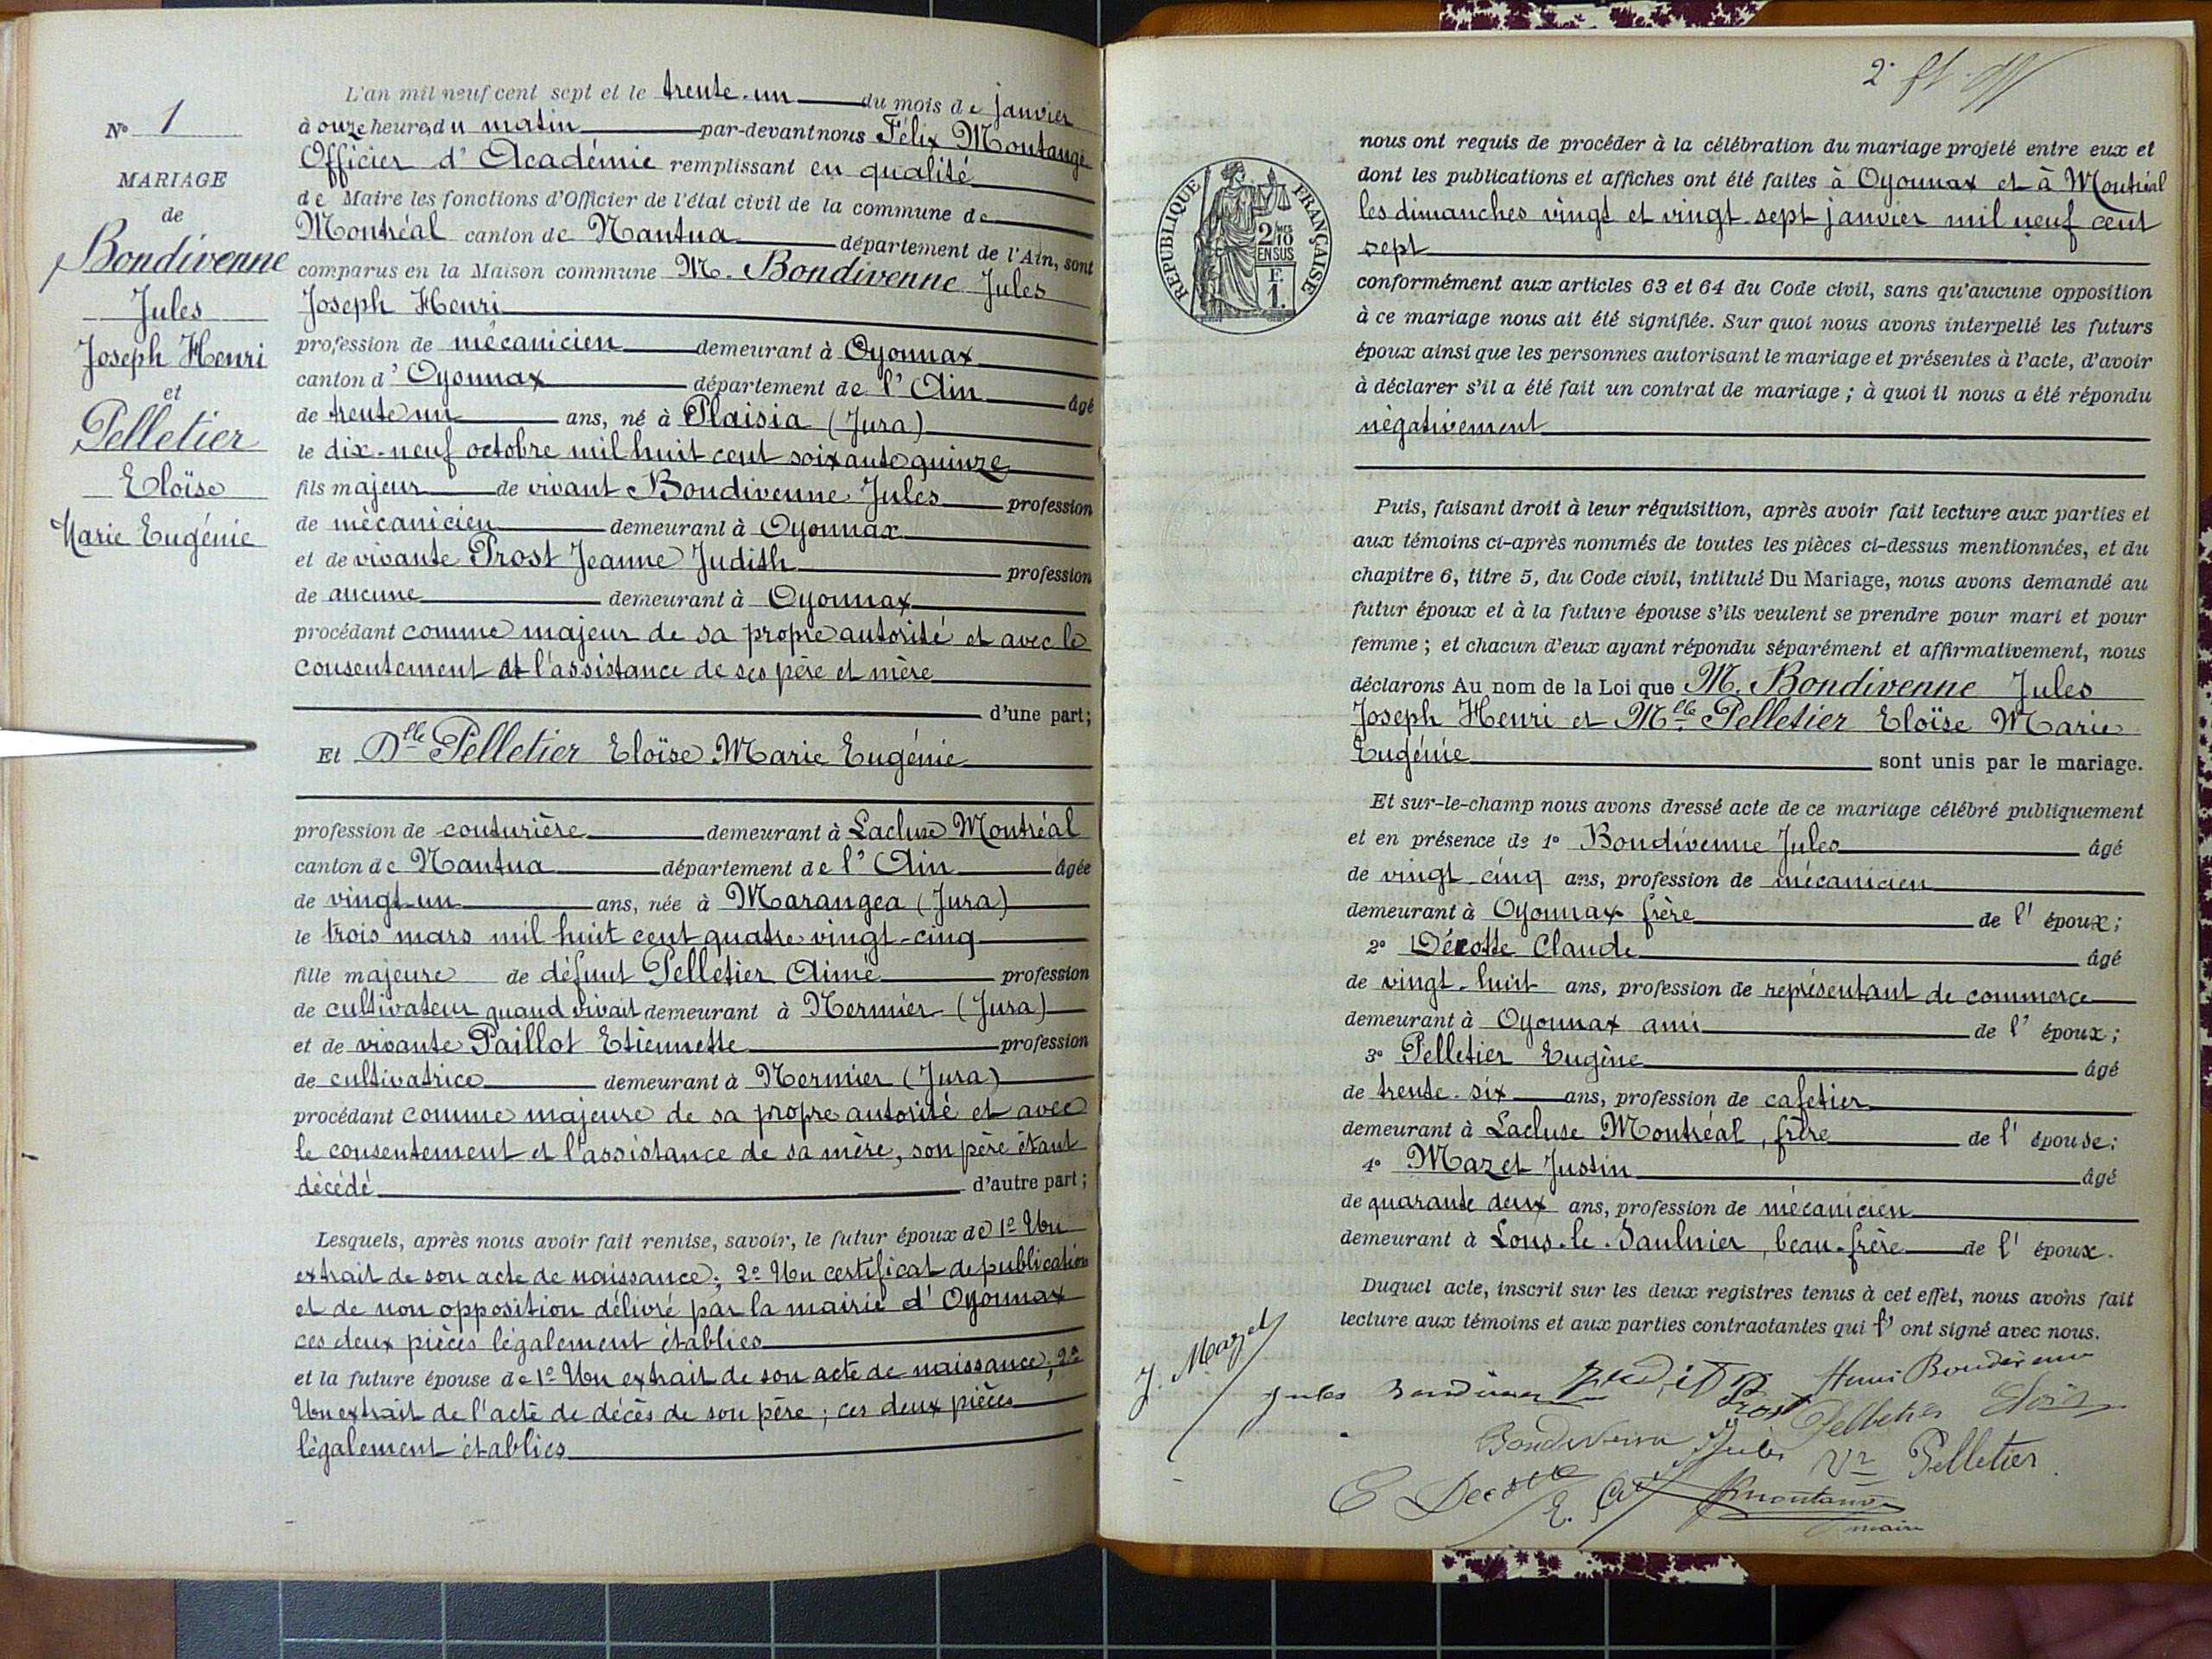 N° 1
MARIAGE
de
Bondivenne
Jules
Joseph Henri
et
Pelletier
Eloïse
Marie Eugénie
L'an mil neuf cent sept et le trente-un du mois de janvier
à onze heures du matin par-devant nous Félix Montange
Officier d'Académie remplissant en qualité
de Maire les fonctions d'Officier de l'état civil de la commune de
Montréal canton de Nantua département de l'Ain, sont
comparus en la Maison commune M. Bondivenne Jules
Joseph Henri
profession de mécanicien demeurant à Oyonnax
canton d' Oyonnax département de l'Ain âgé
de trente un ans, né à Plaisia (Jura)
le dix-neuf octobre mil huit cent soixante quinze
fils majeur de vivant Bondivenne Jules profession
de mécanicien demeurant à Oyonnax
et de vivante Prost Jeanne Judith profession
de aucune demeurant à Oyonnax
procédant comme majeur de sa propre autorité et avec le
consentement et l'assistance de ses père et mère
d'une part;
Et Dlle Pelletier Eloïse Marie Eugénie
profession de couturière demeurant à Lacluse Montréal
canton de Nantua département de l'Ain âgée
de vingt-un ans, née à Marangea (Jura)
le trois mars mil huit cent quatre vingt-cinq
fille majeure de défunt Pelletier Aimé profession
de cultivateur quand vivait demeurant à Mermier (Jura)
et de vivante Paillot Etiennette profession
de cultivatrice demeurant à Mermier (Jura)
procédant comme majeure de sa propre autorité et avec
le consentement et l'assistance de sa mère, son père étant
décédé d'autre part;
Lesquels, après nous avoir fait remise, savoir, le futur époux de 1° Un
extrait de son acte de naissance; 2° Un certificat de publication
et de non opposition délivré par la mairie d'Oyonnax
ces deux pièces légalement établies
et la future épouse de 1° Un extrait de son acte de naissance; 2°
Un extrait de l'acte de décès de son père; ces deux pièces
légalement établies
2e ft
REPUBLIQUE FRANÇAISE
2/10 MES
EN SUS
F.
1.
nous ont requis de procéder à la célébration du mariage projeté entre eux et
dont les publications et affiches ont été faites à Oyonnax et à Montréal
les dimanches vingt et vingt-sept janvier mil neuf cent
sept
conformément aux articles 63 et 64 du Code civil, sans qu'aucune opposition
à ce mariage nous ait été signifiée. Sur quoi nous avons interpellé les futurs
époux ainsi que les personnes autorisant le mariage et présentes à l'acte, d'avoir
à déclarer s'il a été fait un contrat de mariage; à quoi il nous a été répondu
négativement
Puis, faisant droit à leur réquisition, après avoir fait lecture aux parties et
aux témoins ci-après nommés de toutes les pièces ci-dessus mentionnées, et du
chapitre 6, titre 5, du Code civil, intitulé Du Mariage, nous avons demandé au
futur époux et à la future épouse s'ils veulent se prendre pour mari et pour
femme; et chacun d'eux ayant répondu séparément et affirmativement, nous
déclarons Au nom de la Loi que M. Bondivenne Jules
Joseph Henri et Mlle Pelletier Eloïse Marie
Eugénie sont unis par le mariage.
Et sur-le-champ nous avons dressé acte de ce mariage célébré publiquement
et en présence de 1° Bondivenne Jules âgé
de vingt-cinq ans, profession de mécanicien
demeurant à Oyonnax frère de l'époux;
2° Décotte Claude âgé
de vingt-huit ans, profession de représentant de commerce
demeurant à Oyonnax ami de l'époux;
3° Pelletier Eugène âgé
de trente-six ans, profession de cafetier
demeurant à Lacluse Montréal, frère de l'épouse;
4° Mazet Justin âgé
de quarante deux ans, profession de mécanicien
demeurant à Lons-le-Saulnier, beau-frère de l'époux.
Duquel acte, inscrit sur les deux registres tenus à cet effet, nous avons fait
lecture aux témoins et aux parties contractantes qui l'ont signé avec nous.
J. Mazet
Jules Bondivenne Judit Prost Henri Bondivenne
Pelletier Eloïse
Bondivenne Jules Vve Pelletier
C Decotte E. Montange
maire